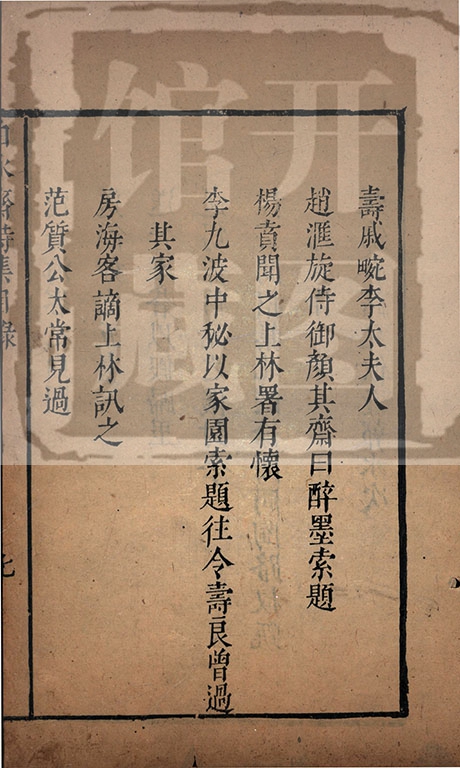 壽戚畹李太夫人
趙滙旋侍御顏其齋曰醉墨索題
楊賁聞之上林署有懷
李九波中秘以家園索題往令壽良曾過
其家
房海客謫上林訊之
范質公太常見過
齋詩集目錄
七
开图
馆藏